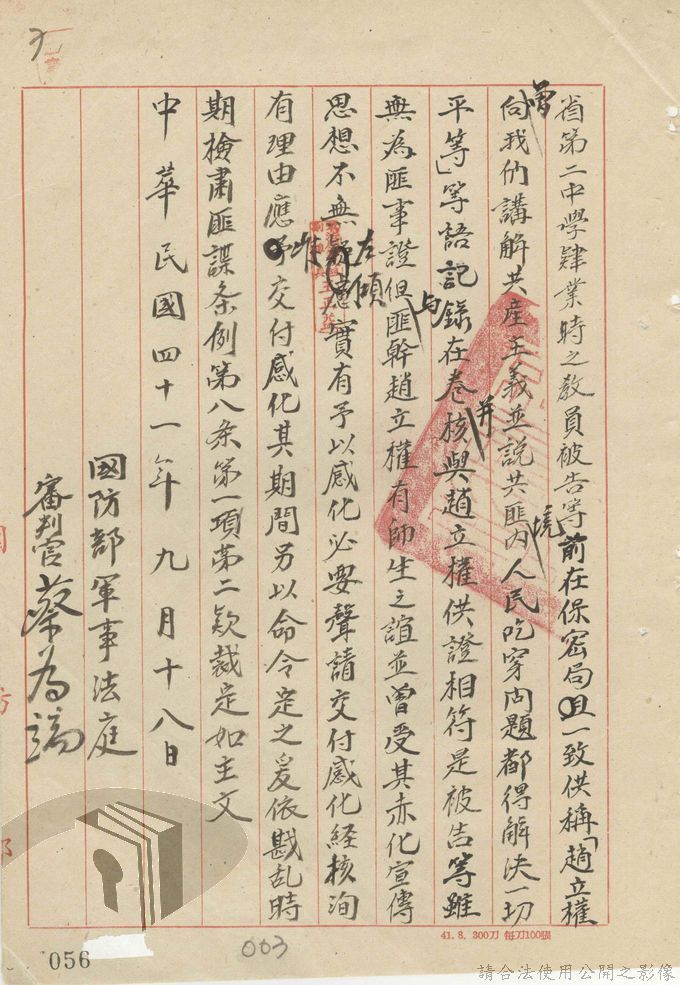 省第二中學肄業時之教員被告等前在保密局且一致供稱「趙立權
曾向我們講解共產主義並說共匪境內人民吃穿問題都得解決一切
平等」等語記錄在卷并核與趙立權供證相符是被告等雖
無為匪事證但與匪幹趙立權有師生之誼並曾受其赤化宣傳
思想不無左傾實有予以感化必要聲請交付感化經核洵
有理由應准交付感化其期間另以命令定之爰依戡乱時
期檢肅匪諜条例第八条第一項第二款裁定如主文
中華民國四十一年九月十八日
國防部軍事法庭
審判官蔡為端
41. 8. 300刀 每刀100張
056
003
請合法使用公開之影像